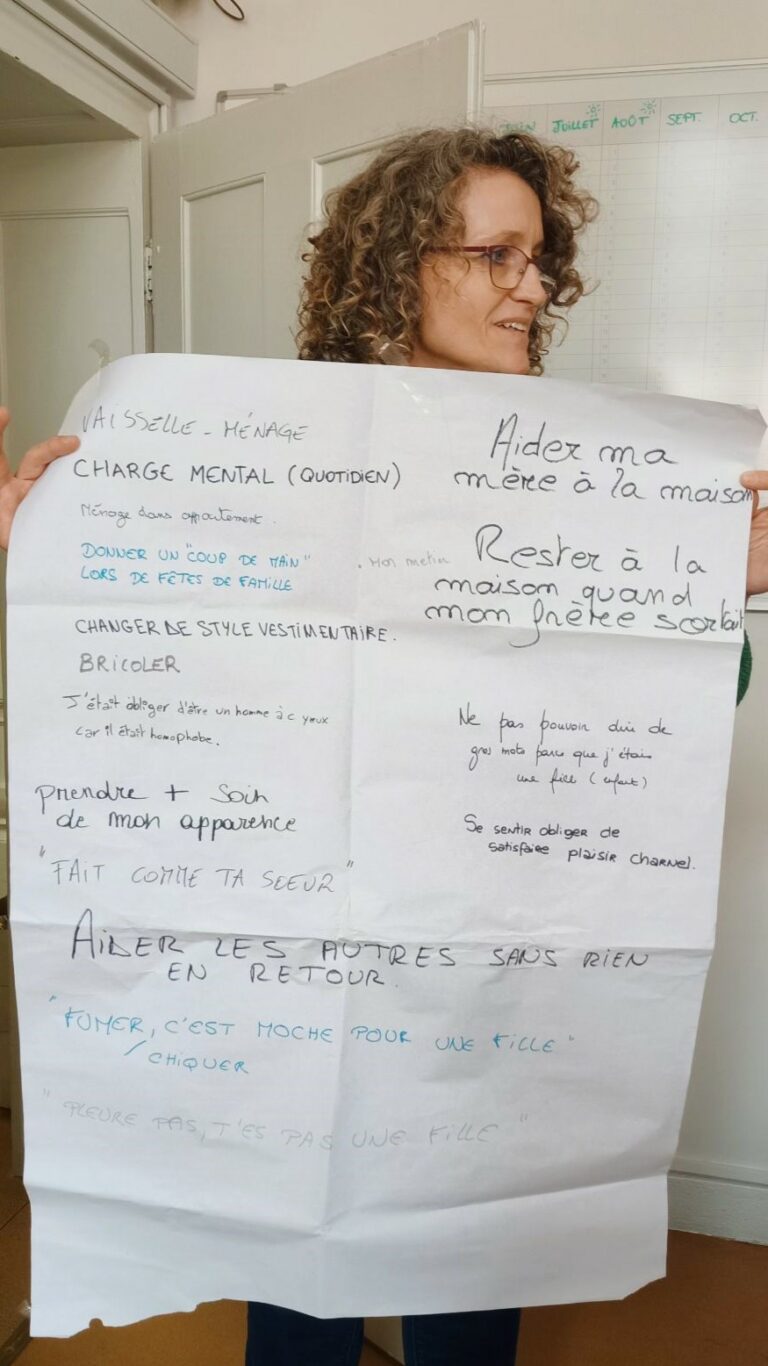 JUIN JUILLET AOÛT SEPT. OCT.
VAISSELLE - MÉNAGE
CHARGE MENTAL (QUOTIDIEN)
Ménage dans appartement.
DONNER UN "COUP DE MAIN"
LORS DE FÊTES DE FAMILLE
CHANGER DE STYLE VESTIMENTAIRE.
BRICOLER
J'était obliger d'être un homme à c yeux
car il était homophobe.
prendre + soin
de mon apparence
"FAIT COMME TA SOEUR"
Aider ma
mère à la maison
. Mon metier
Rester à la
maison quand
mon frère sortait
Ne pas pouvoir dire de
gros mots parce que j'étais
une fille (enfant)
Se sentir obliger de
satisfaire plaisir charnel.
AIDER LES AUTRES SANS RIEN
EN RETOUR.
"FUMER, C'EST MOCHE POUR UNE FILLE"
/CHIQUER
"PLEURE PAS, T'ES PAS UNE FILLE"